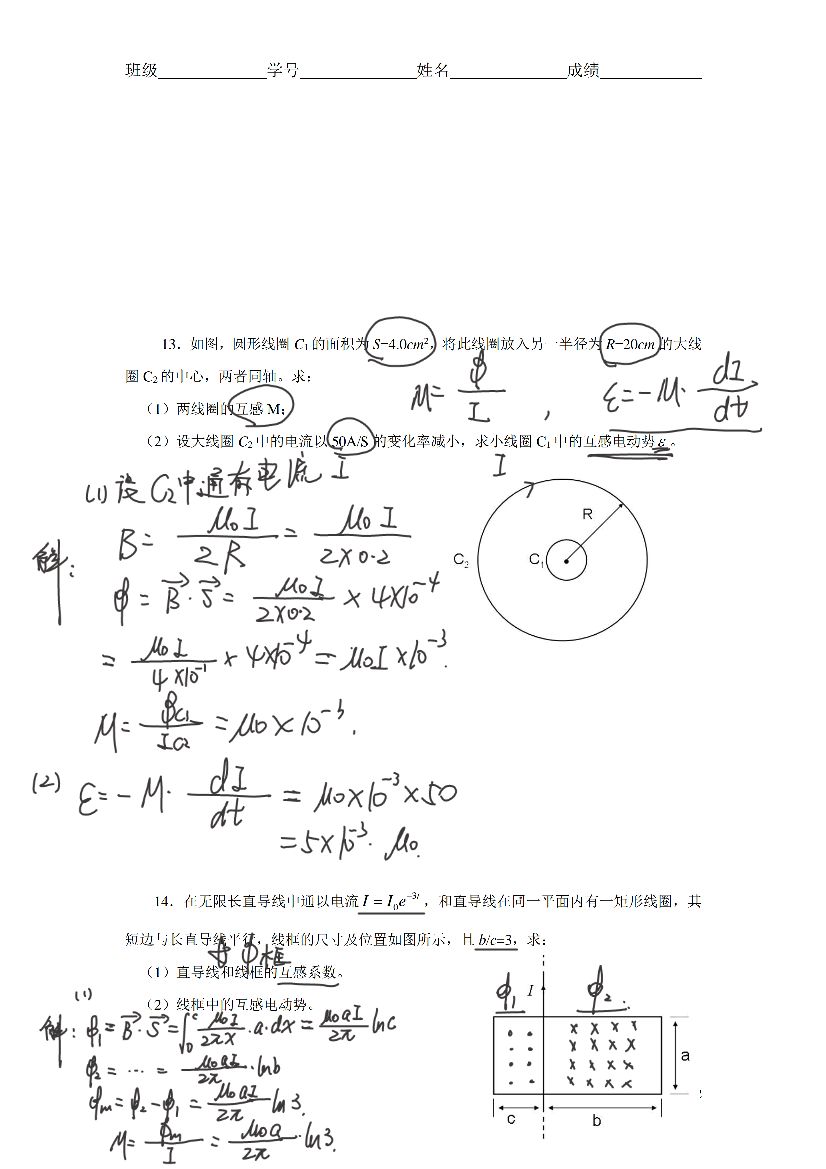 班级 学号 姓名 成绩
13．如图，圆形线圈 C₁的面积为 S=4.0cm²，将此线圈放入另一半径为 R=20cm 的大线
圈 C₂的中心，两者同轴。求：
M = φ/I , ε = -M· dI/dt
（1）两线圈的互感 M；
（2）设大线圈 C₂中的电流以 50A/S 的变化率减小，求小线圈 C₁中的互感电动势 ε。
解：
(1) 设 C₂中通有电流 I
B = μ₀I/2R = μ₀I/2×0.2
φ = B⃗·S⃗ = μ₀I/2×0.2 × 4×10⁻⁴
= μ₀I/4×10⁻¹ × 4×10⁻⁴ = μ₀I×10⁻³.
M = φC₁/IC₂ = μ₀×10⁻³.
I
R
C₂
C₁
(2) ε = -M· dI/dt = μ₀×10⁻³×50
= 5×10⁻³· μ₀.
14．在无限长直导线中通以电流 I = I₀e⁻³ᵗ，和直导线在同一平面内有一矩形线圈，其
短边与长直导线平行，线框的尺寸及位置如图所示，且 b/c=3，求：
（1）直导线和线框的互感系数。
（2）线框中的互感电动势。
(1)
解：φ₁ = B⃗·S⃗ = ∫₀ᶜ μ₀I/2πx ·a·dx = μ₀aI/2π lnc
φ₂ = ··· = μ₀aI/2π ·lnb
φm = φ₂-φ₁ = μ₀aI/2π ln3.
M = φm/I = μ₀a/2π ·ln3.
φ₁ I φ₂
a
c b